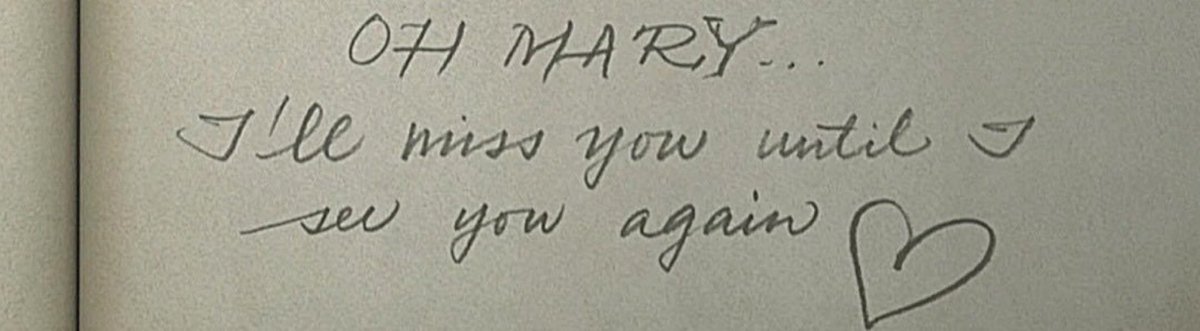 OH MARY...
I'll miss you until I
see you again